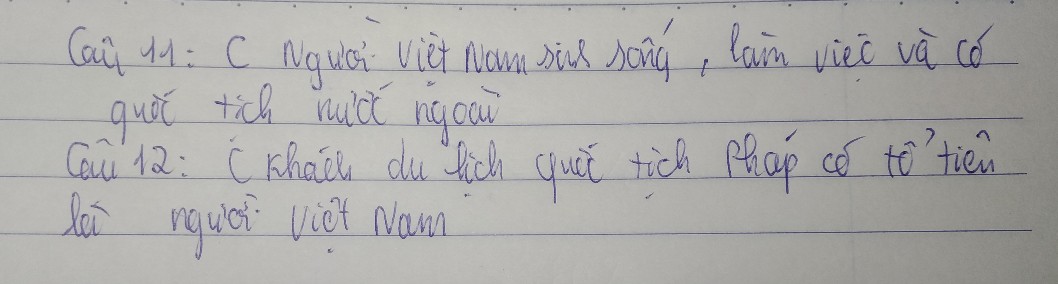 Câu 11: C Người Việt Nam sinh sống, làm việc và có
quốc tịch nước ngoài
Câu 12: C Khách du lịch quốc tịch Pháp có tổ tiên
là người Việt Nam